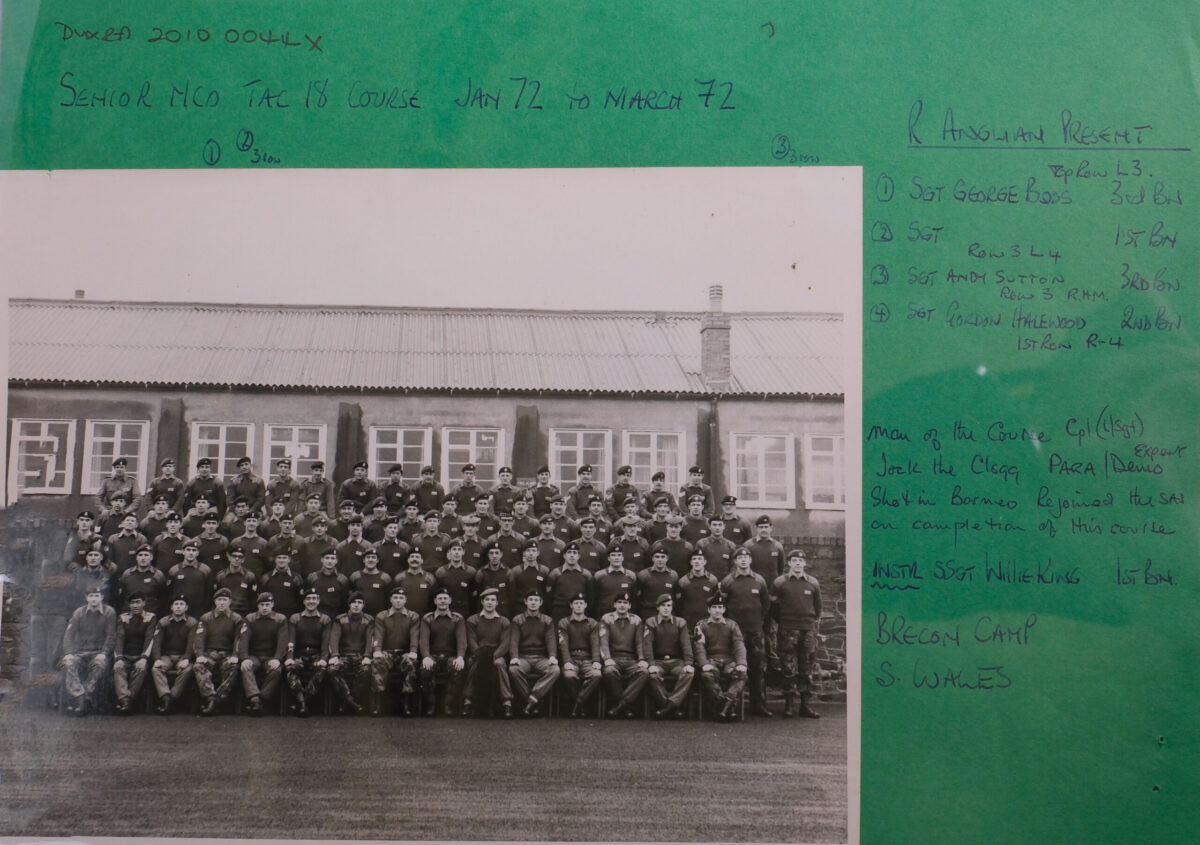 DUXFD 2010 0044X
SENIOR NCO TAC 18 COURSE JAN 72 to MARCH 72
①
② 3 row
③ 3 row
R ANGLIAN PRESENT
Top Row L3.
① SGT GEORGE BOSS 3rd BN
② SGT 1ST BN
Row 3 L4
③ SGT ANDY SUTTON 3RD BN
ROW 3 R.H.M.
④ SGT GORDON HALEWOOD 2ND BN
1ST ROW R-4
Man of the Course Cpl (L/Sgt)
Jock the Clegg PARA/Demo Expert
Shot in Borneo Rejoined the SAS
on completion of this course
INSTR SSGT WILLIE KING 1ST BN.
BRECON CAMP
S. WALES